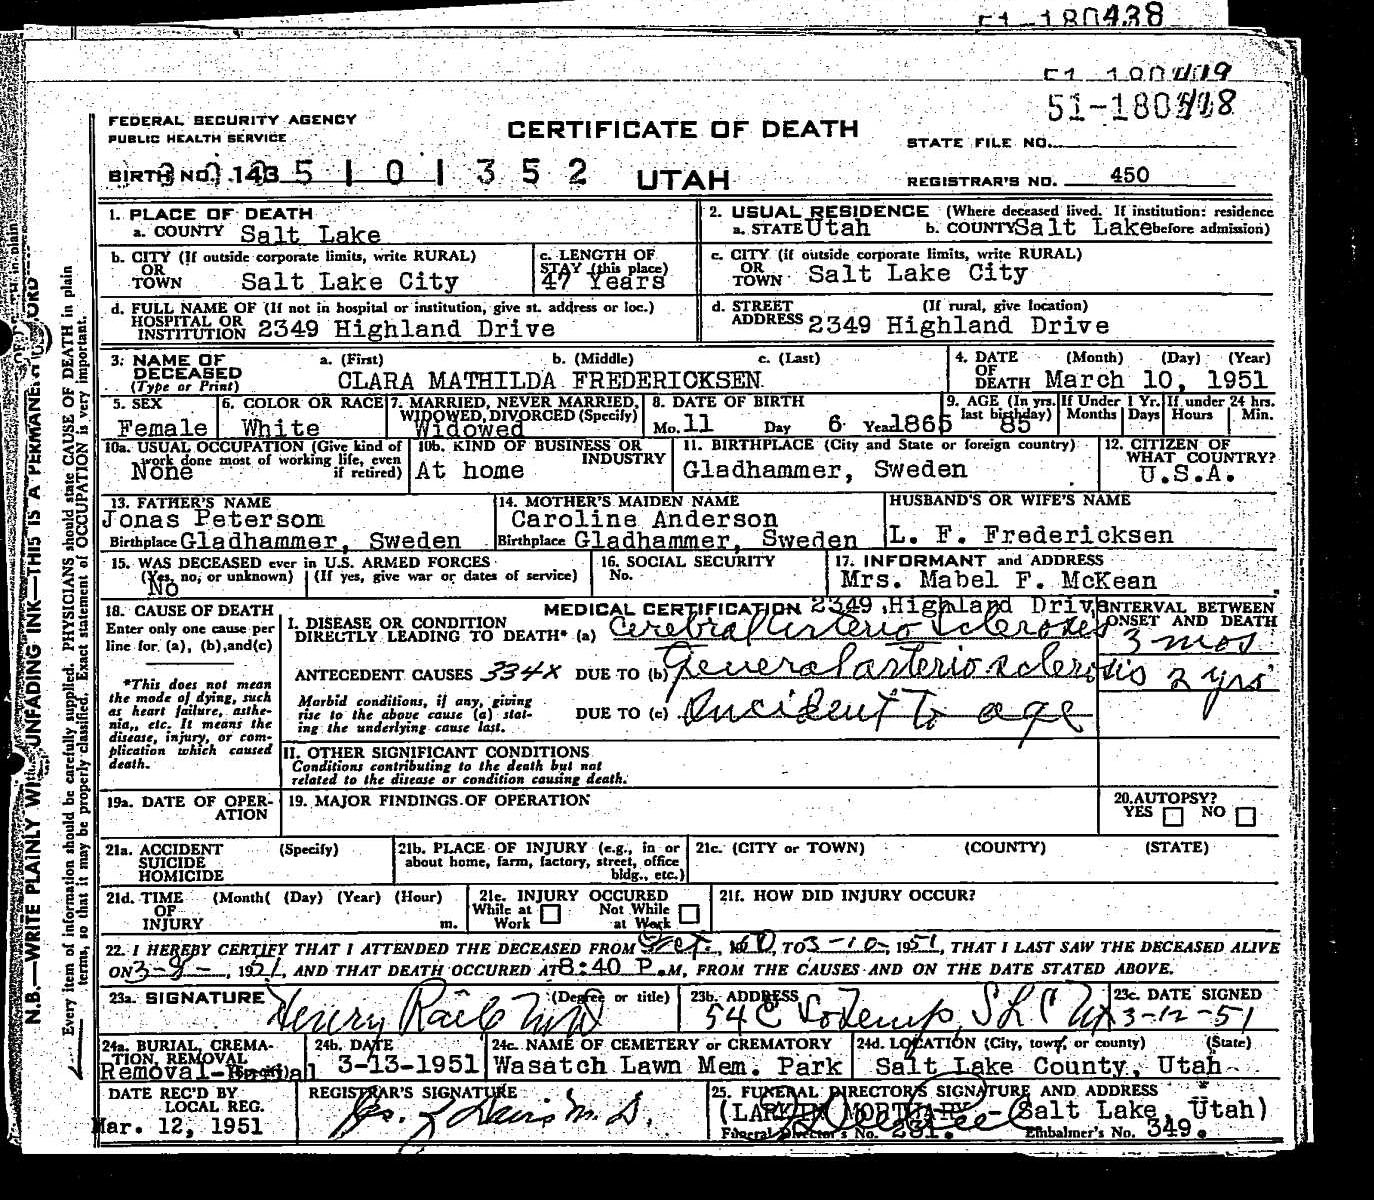 51-180438
51-180419
51-180518
FEDERAL SECURITY AGENCY
PUBLIC HEALTH SERVICE
CERTIFICATE OF DEATH
STATE FILE NO.
BIRTH NO. 143 5 1 0 1 3 5 2 UTAH
REGISTRAR'S NO. 450
1. PLACE OF DEATH
a. COUNTY Salt Lake
2. USUAL RESIDENCE (Where deceased lived. If institution: residence
a. STATE Utah b. COUNTY Salt Lake before admission)
b. CITY (If outside corporate limits, write RURAL)
OR
TOWN Salt Lake City
c. LENGTH OF
STAY (this place)
47 Years
c. CITY (if outside corporate limits, write RURAL)
OR
TOWN Salt Lake City
d. FULL NAME OF (If not in hospital or institution, give st. address or loc.)
HOSPITAL OR
INSTITUTION 2349 Highland Drive
d. STREET (If rural, give location)
ADDRESS 2349 Highland Drive
3. NAME OF a. (First) b. (Middle) c. (Last)
DECEASED
(Type or Print) CLARA MATHILDA FREDERICKSEN
4. DATE (Month) (Day) (Year)
OF
DEATH March 10, 1951
5. SEX
Female
6. COLOR OR RACE
White
7. MARRIED, NEVER MARRIED,
WIDOWED, DIVORCED (Specify)
Widowed
8. DATE OF BIRTH
Mo. 11 Day 6 Year 1865
9. AGE (In yrs.
last birthday)
85
If Under 1 Yr.
Months Days
If under 24 hrs.
Hours Min.
10a. USUAL OCCUPATION (Give kind of
work done most of working life, even
if retired)
None
10b. KIND OF BUSINESS OR
INDUSTRY
At home
11. BIRTHPLACE (City and State or foreign country)
Gladhammer, Sweden
12. CITIZEN OF
WHAT COUNTRY?
U.S.A.
13. FATHER'S NAME
Jonas Peterson
Birthplace Gladhammer, Sweden
14. MOTHER'S MAIDEN NAME
Caroline Anderson
Birthplace Gladhammer, Sweden
HUSBAND'S OR WIFE'S NAME
L. F. Fredericksen
15. WAS DECEASED ever in U.S. ARMED FORCES
(Yes, no, or unknown) (If yes, give war or dates of service)
No
16. SOCIAL SECURITY
No.
17. INFORMANT and ADDRESS
Mrs. Mabel F. McKean
2349 Highland Drive
18. CAUSE OF DEATH
Enter only one cause per
line for (a), (b), and(c)
*This does not mean
the mode of dying, such
as heart failure, asthe-
nia,, etc. It means the
disease, injury, or com-
plication which caused
death.
MEDICAL CERTIFICATION
I. DISEASE OR CONDITION
DIRECTLY LEADING TO DEATH* (a) Cerebral Arterio Scleroses
INTERVAL BETWEEN
ONSET AND DEATH
3 mos
ANTECEDENT CAUSES 334X DUE TO (b) General arteriosclerosis 2 yrs
Morbid conditions, if any, giving
rise to the above cause (a) stat-
ing the underlying cause last.
DUE TO (c) Incident to age
II. OTHER SIGNIFICANT CONDITIONS
Conditions contributing to the death but not
related to the disease or condition causing death.
19a. DATE OF OPER-
ATION
19. MAJOR FINDINGS OF OPERATION
20. AUTOPSY?
YES NO
21a. ACCIDENT (Specify)
SUICIDE
HOMICIDE
21b. PLACE OF INJURY (e.g., in or
about home, farm, factory, street, office
bldg., etc.)
21c. (CITY or TOWN) (COUNTY) (STATE)
21d. TIME (Month( (Day) (Year) (Hour)
OF
INJURY m.
21e. INJURY OCCURED
While at Work Not While at Work
21f. HOW DID INJURY OCCUR?
22. I HEREBY CERTIFY THAT I ATTENDED THE DECEASED FROM Oct., 1950, TO 3-10-, 1951, THAT I LAST SAW THE DECEASED ALIVE
ON 3-8-, 1951, AND THAT DEATH OCCURED AT 8:40 P.M, FROM THE CAUSES AND ON THE DATE STATED ABOVE.
23a. SIGNATURE (Degree or title)
Henry Raile MD
23b. ADDRESS
54 E So Temp, S L C Ut
23c. DATE SIGNED
3-12-51
24a. BURIAL, CREMA-
TION, REMOVAL
Removal-Burial
24b. DATE
3-13-1951
24c. NAME OF CEMETERY or CREMATORY
Wasatch Lawn Mem. Park
24d. LOCATION (City, town, or county) (State)
Salt Lake County, Utah
DATE REC'D BY
LOCAL REG.
Mar. 12, 1951
REGISTRAR'S SIGNATURE
M. D.
25. FUNERAL DIRECTOR'S SIGNATURE AND ADDRESS
(LARKIN MORTUARY - Salt Lake, Utah)
Funeral Director's No. 231. Embalmer's No. 349.
N.B.—WRITE PLAINLY WITH UNFADING INK—THIS IS A PERMANENT RECORD
Every item of information should be carefully supplied. PHYSICIANS should state CAUSE OF DEATH in plain
terms, so that it may be properly classified. Exact statement of OCCUPATION is very important.